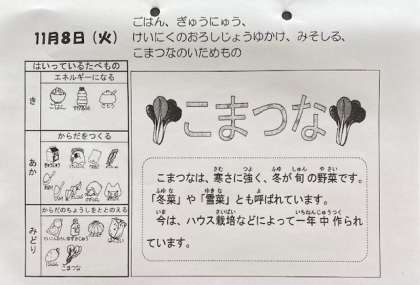 11月8日（火）
ごはん、ぎゅうにゅう、
けいにくのおろしじょうゆかけ、みそしる、
こまつなのいためもの
はいっているたべもの
き
エネルギーになる
あか
からだをつくる
みどり
からだのちょうしをととのえる
こまつな
こまつな
こまつなは、寒さに強く、冬が旬の野菜です。
「冬菜」や「雪菜」とも呼ばれています。
今は、ハウス栽培などによって一年中作られ
ています。